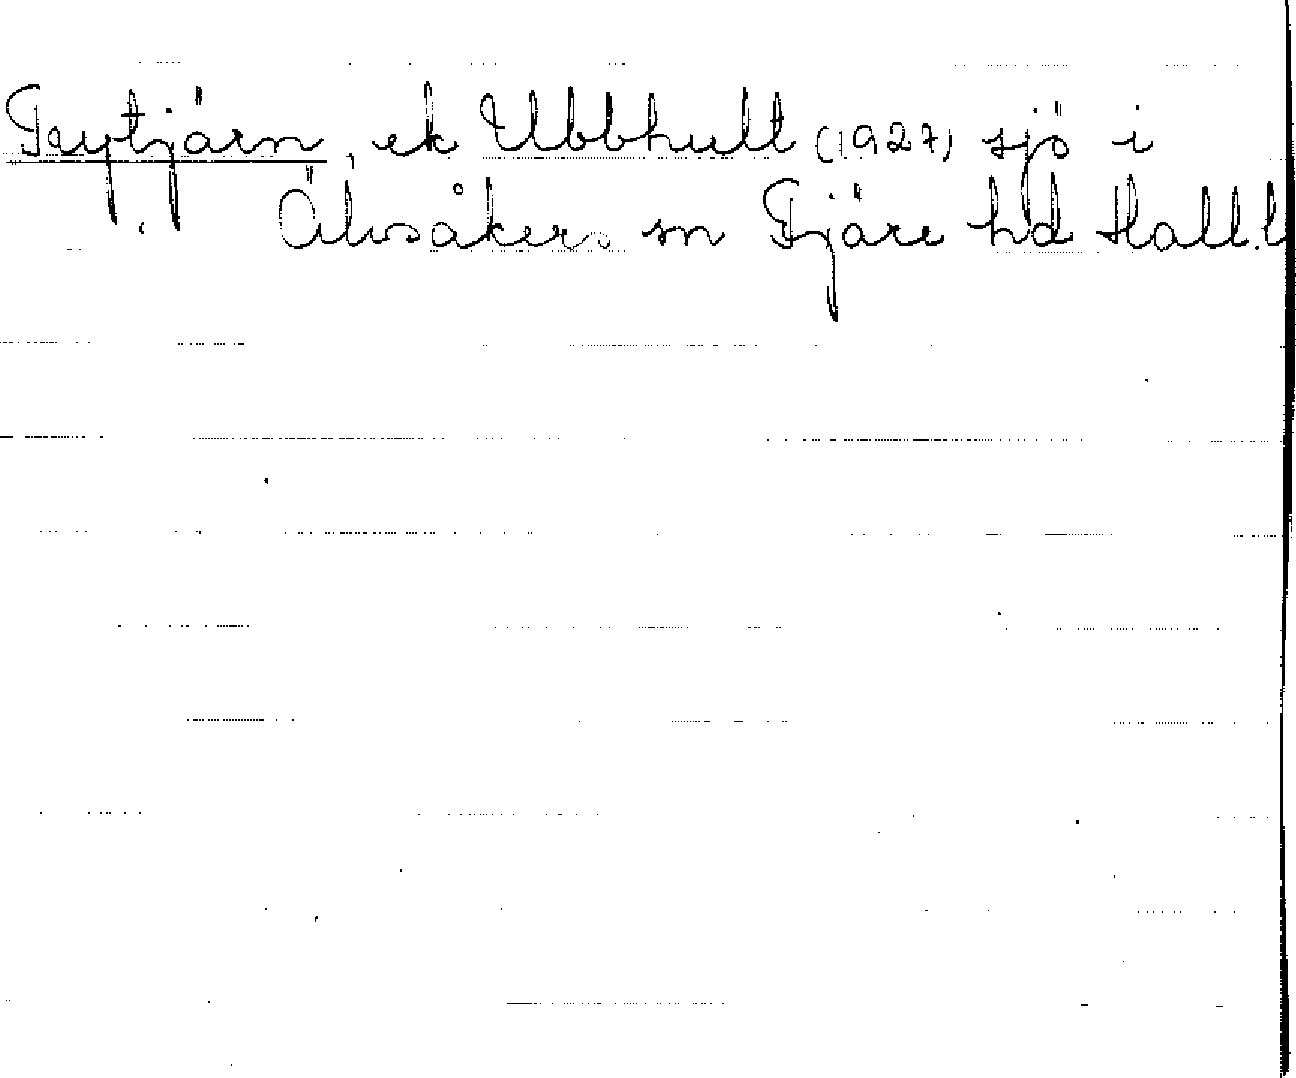 Peytjärn, ek Ubbhult (1927) sjö i
Älvsåkers sn Fjäre hd Hall.l